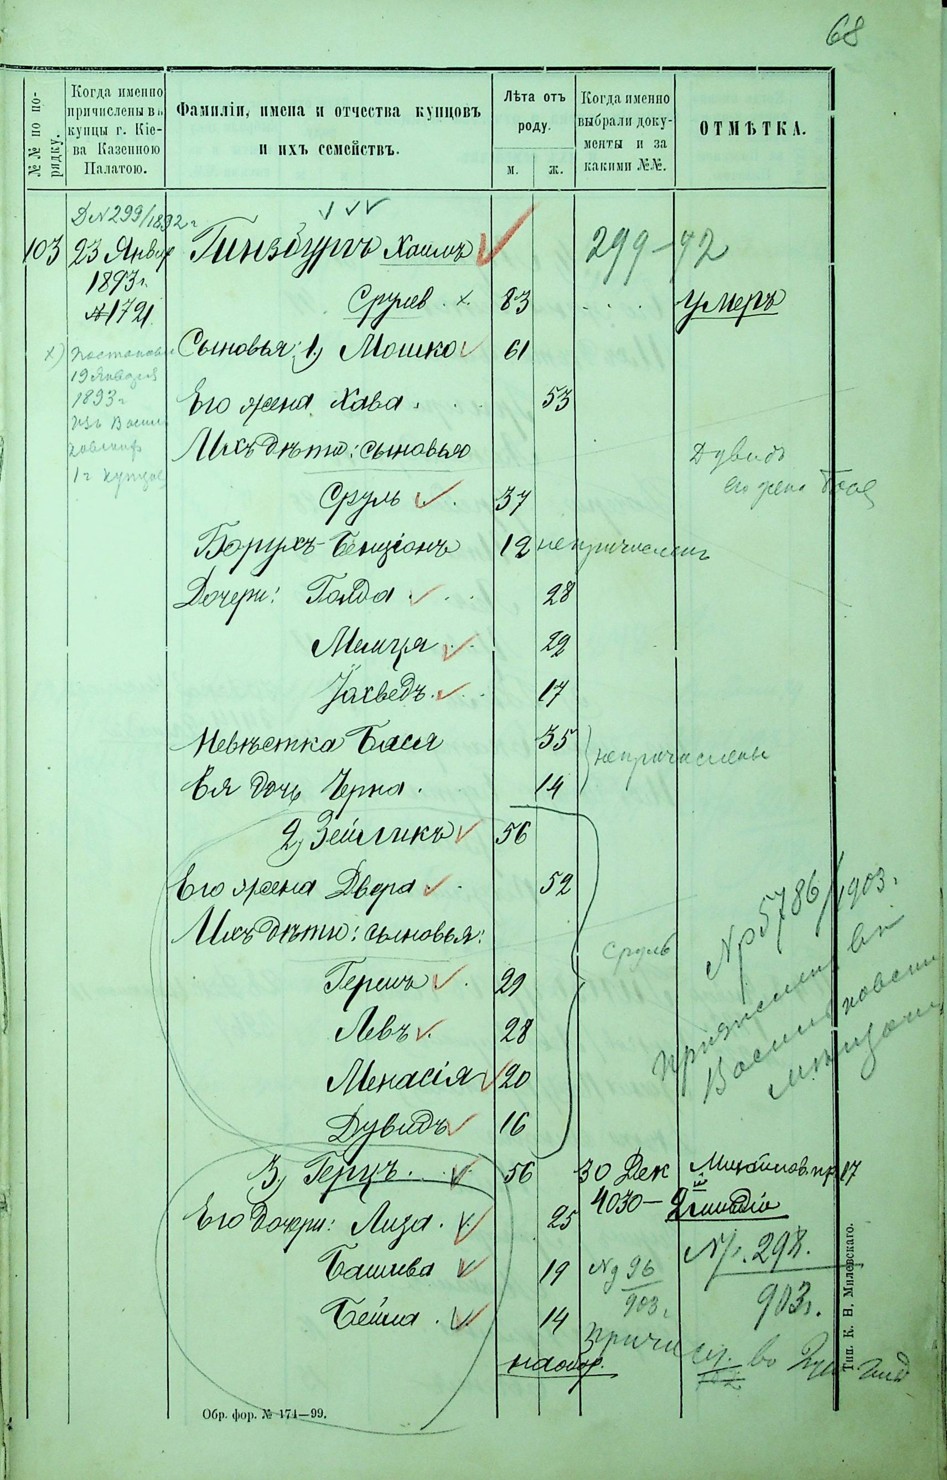 68
№№ по по-
рядку.
Когда именно
причислены въ
купцы г. Кіе-
ва Казенною
Палатою.
Фамиліи, имена и отчества купцовъ
и ихъ семействъ.
Лѣта отъ
роду.
м. ж.
Когда именно
выбрали доку-
менты и за
какими №№.
ОТМѢТКА.
Д № 299/1892 г
103 23 Январ Гинзбургъ Хаимъ 299-92
1893 г.
№ 1721
Срулев. х. 83 умеръ
х)
19 Января
1893 г
Изъ Васил
ковских
1 г купцов
Сыновья: 1) Мошко 61
Его жена Хава 53
Ихъ дѣти: сыновья Дувидъ
его жена
Сруль 37
Борухъ-Бенціонъ 12 непричислены
Дочери: Голда 28
Маня 22
Іохведъ 17
Невѣстка Бася 35
Ея дочь Черна 14 непричислены
2) Зейликъ 56
Его жена Двера 52
Ихъ дѣти: сыновья: Сруль
№р 5786/1903 г.
Гершъ 29
Левъ 28
Менасія 20
Дувидъ 16
3) Герцъ 56 30 Дек 17
4030 — 2 гильдіи
Его дочери: Лиза 25
Башива 19 №д 96
903 г
№р. 298.
903 г.
Бейла 14
на обор.
Обр. фор. № 174—99.
Тип. К. Н. Милевскаго.